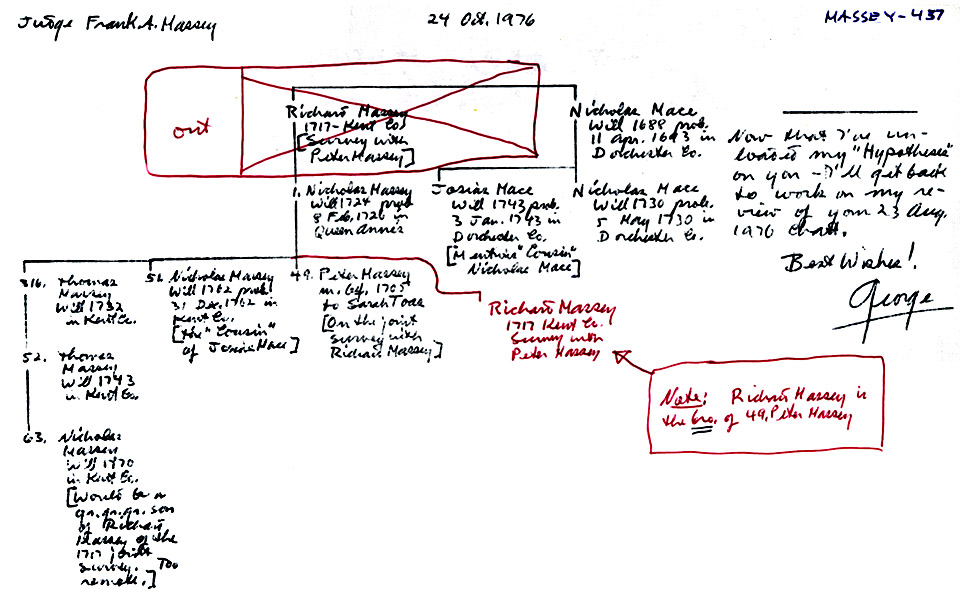 Judge Frank A. Massey
24 Oct. 1976
MASSEY-437
out
Richard Massey
1717 - Kent Co
[Survey with
Peter Massey]
Nicholas Mace
Will 1688 prob.
11 Apr. 1693 in
Dorchester Co.
Now that I've un-
loaded my "Hypothesis"
on you - I'll get back
to work on my re-
view of your 23 Aug.
1976 chart.
Best Wishes!
George
1. Nicholas Massey
Will 1724 prob
8 Feb. 1726 in
Queen Anne's
Josias Mace
Will 1743 prob.
3 Jan. 1743 in
Dorchester Co.
["Mentions" Cousin"
Nicholas Mace]
Nicholas Mace
Will 1730 prob.
5 May 1730 in
Dorchester Co.
316. Thomas
Massey
Will 1732
in Kent Co.
51. Nicholas Massey
Will 1762 prob
31 Dec. 1762 in
Kent Co.
[the "Cousin"
of Josias Mace]
49. Peter Massey
m. 1705
to Sarah Toas
[On the joint
survey with
Richard Massey]
Richard Massey
1717 Kent Co.
Survey with
Peter Massey
52. Thomas
Massey
Will 1743
in Kent Co.
Note: Richard Massey is
the bro. of 49. Peter Massey
63. Nicholas
Massey
Will 1770
in Kent Co.
[Would be a
gr. gr. gr. son
of Richard
Massey of the
1717 joint
survey. Too
remote.]